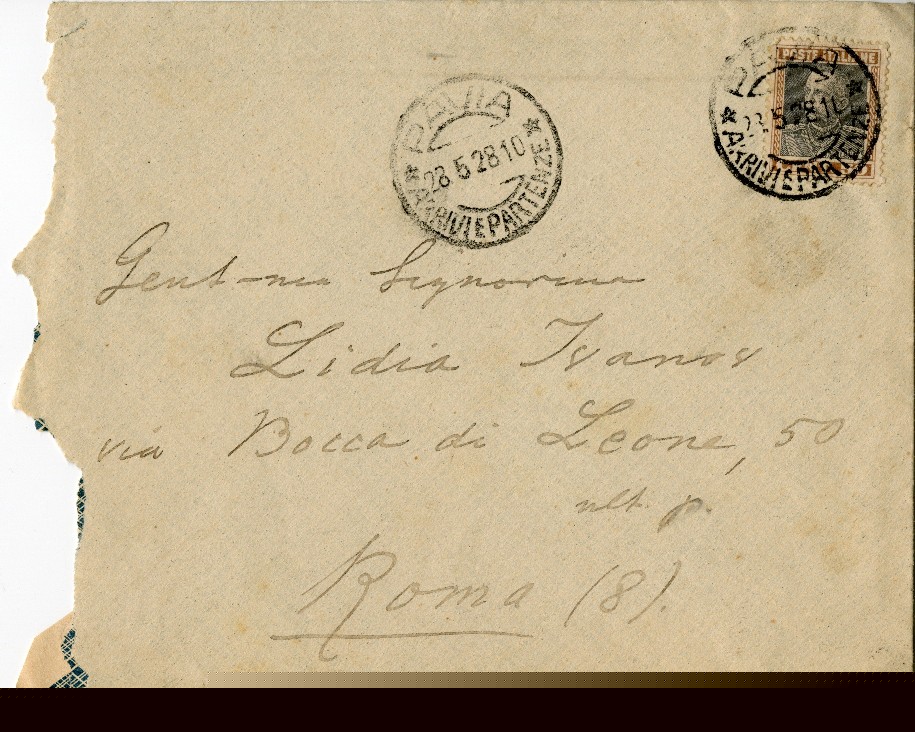 POSTE ITALIANE
PAVIA
23.5 28 10
* ARRIVI E PARTENZE *
PAVIA
23.5 28 10
* ARRIVI E PARTENZE *
Gent-ma Signorina
Lidia Ivanov
via Bocca di Leone, 50
ult. p.
Roma (8).